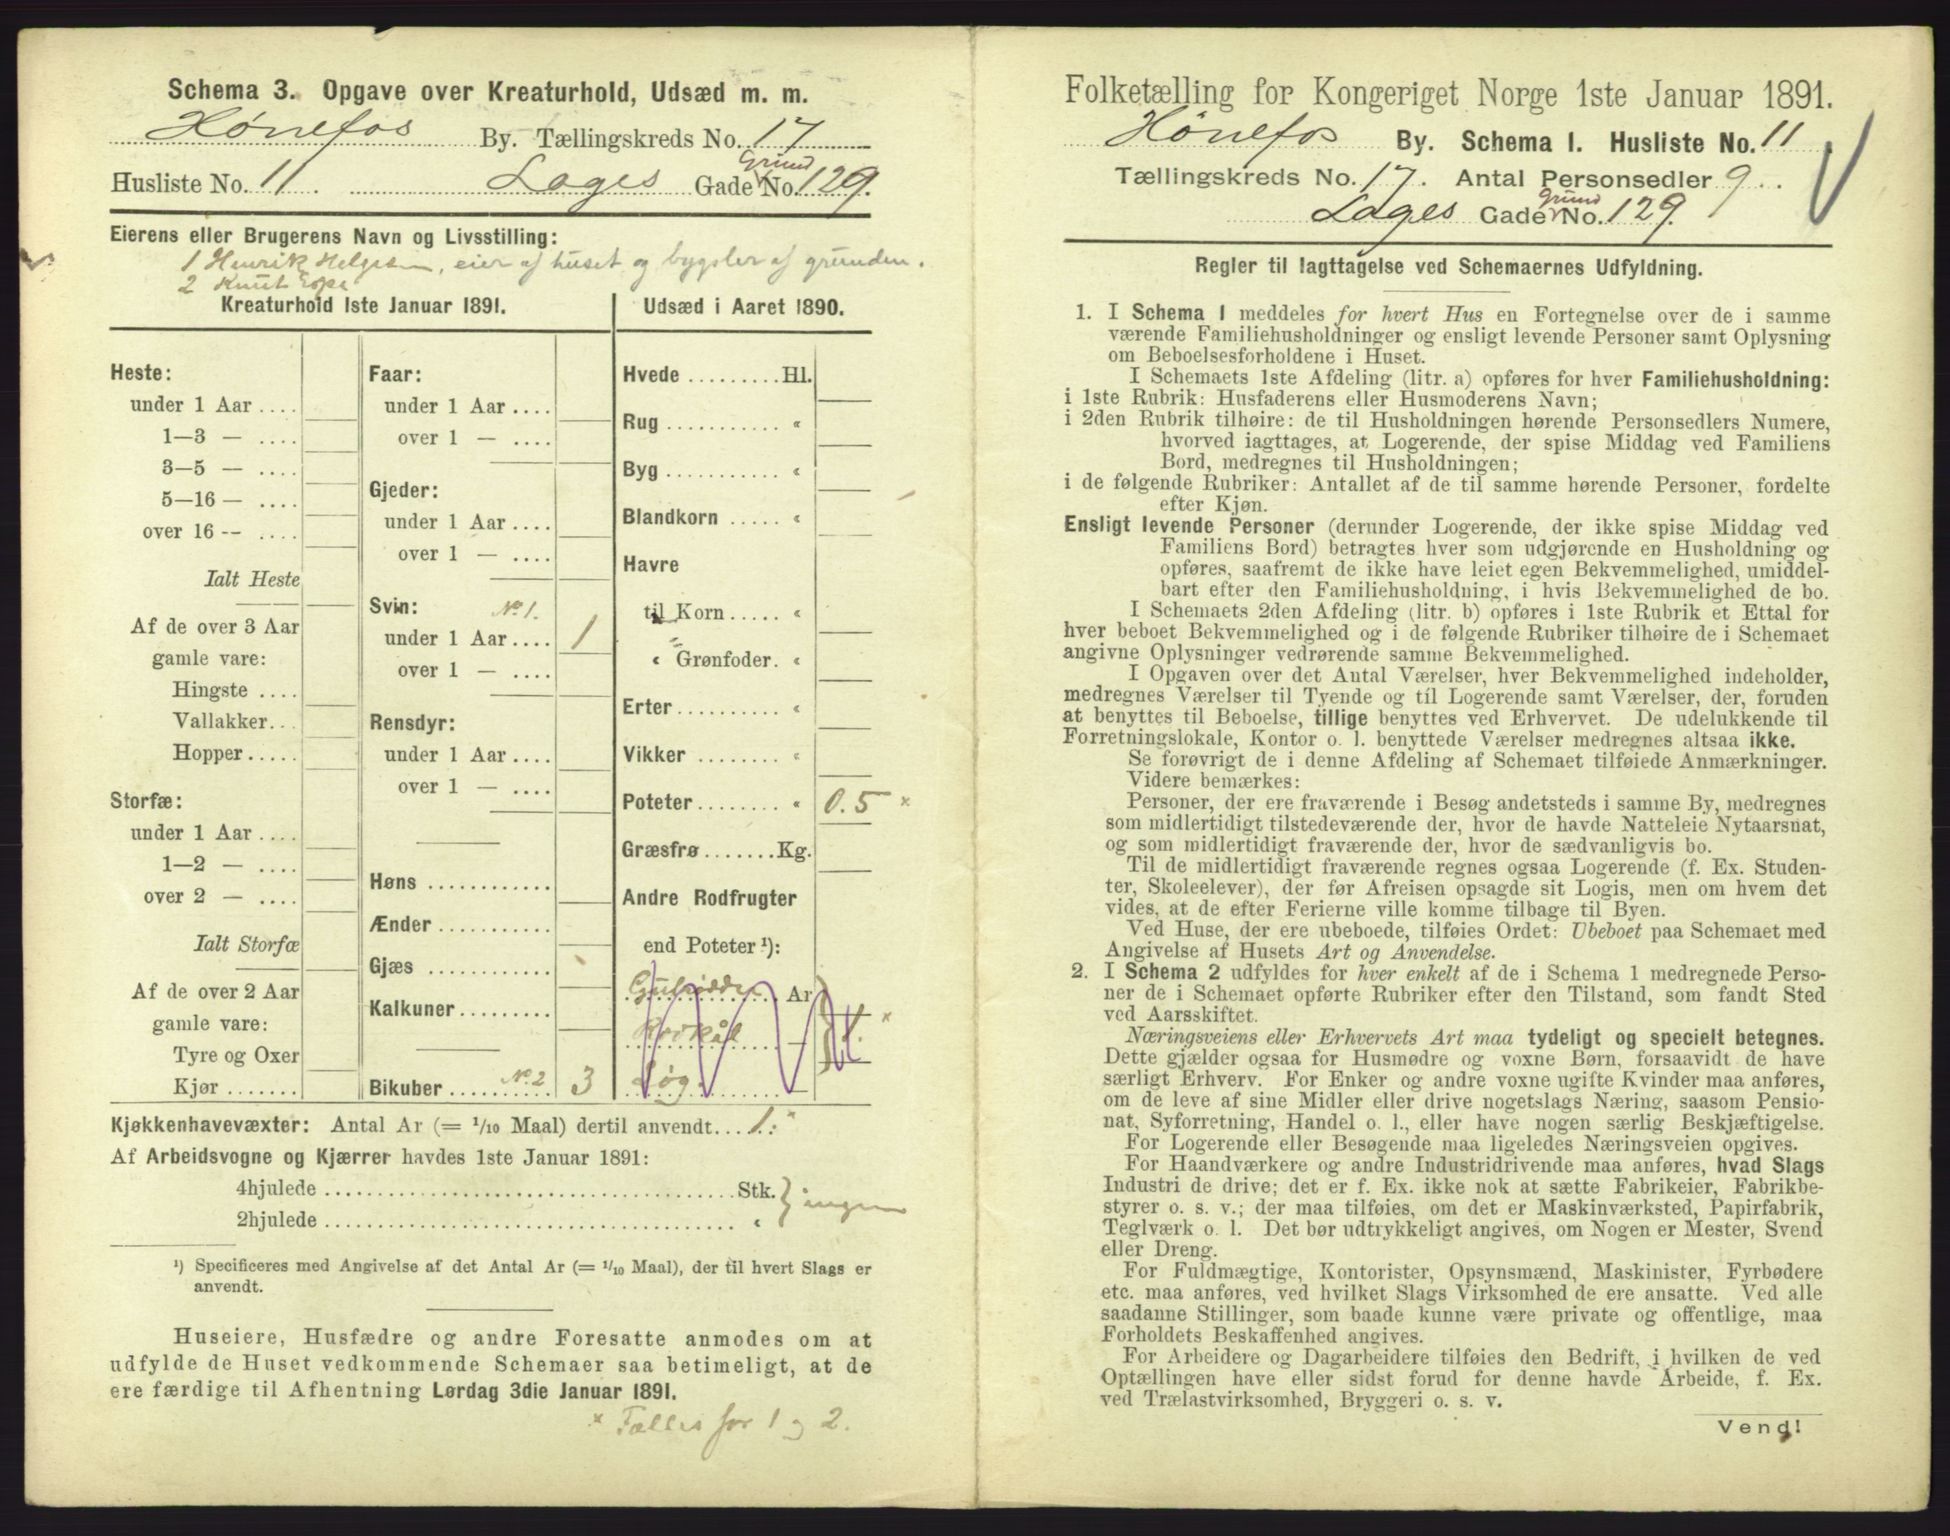 Schema 3. Opgave over Kreaturhold, Udsæd m. m.
Hønefos By. Tællingskreds No. 17
Husliste No. 11. Lages Gade Grund No. 129.
Eierens eller Brugerens Navn og Livsstilling:
1 Henrik Helgesen, eier af huset og bygsler af grunden.
2 Knut
Kreaturhold 1ste Januar 1891.
Heste:
under 1 Aar ....
1—3 — ....
3—5 — ....
5—16 — ....
over 16 — ....
Ialt Heste
Af de over 3 Aar
gamle vare:
Hingste ....
Vallakker...
Hopper.....
Storfæ:
under 1 Aar ....
1—2 — ....
over 2 — ....
Ialt Storfæ
Af de over 2 Aar
gamle vare:
Tyre og Oxer
Kjør .......
Faar:
under 1 Aar ....
over 1 — ....
Gjeder:
under 1 Aar ....
over 1 — ....
Svin: No. 1.
under 1 Aar .... 1
over 1 — ....
Rensdyr:
under 1 Aar ....
over 1 — ....
Høns ............
Ænder ...........
Gjæs ............
Kalkuner ........
Bikuber .......... No. 2 3
Udsæd i Aaret 1890.
Hvede ......... Hl.
Rug ........... «
Byg ........... «
Blandkorn ..... «
Havre
til Korn ..... «
« Grønfoder. «
Erter .......... «
Vikker ........ «
Poteter ........ « 0.5 ×
Græsfrø ....... Kg.
Andre Rodfrugter
end Poteter ¹):
Gulrødder Ar
Løg. —
1. ×
Kjøkkenhavevæxter: Antal Ar (= 1/10 Maal) dertil anvendt.... 1. ×
Af Arbeidsvogne og Kjærrer havdes 1ste Januar 1891:
4hjulede .................................. Stk. } ingen
2hjulede .................................. «
¹) Specificeres med Angivelse af det Antal Ar (= 1/10 Maal), der til hvert Slags er
anvendt.
Huseiere, Husfædre og andre Foresatte anmodes om at
udfylde de Huset vedkommende Schemaer saa betimeligt, at de
ere færdige til Afhentning Lørdag 3die Januar 1891.
× Fælles for 1 og 2.
Folketælling for Kongeriget Norge 1ste Januar 1891.
Hønefos By. Schema I. Husliste No. 11
Tællingskreds No. 17. Antal Personsedler 9.
Lages Gade Grund No. 129.
Regler til Iagttagelse ved Schemaernes Udfyldning.
1. I Schema I meddeles for hvert Hus en Fortegnelse over de i samme
værende Familiehusholdninger og ensligt levende Personer samt Oplysning
om Beboelsesforholdene i Huset.
I Schemaets 1ste Afdeling (litr. a) opføres for hver Familiehusholdning:
i 1ste Rubrik: Husfaderens eller Husmoderens Navn;
i 2den Rubrik tilhøire: de til Husholdningen hørende Personsedlers Numere,
hvorved iagttages, at Logerende, der spise Middag ved Familiens
Bord, medregnes til Husholdningen;
i de følgende Rubriker: Antallet af de til samme hørende Personer, fordelte
efter Kjøn.
Ensligt levende Personer (derunder Logerende, der ikke spise Middag ved
Familiens Bord) betragtes hver som udgjørende en Husholdning og
opføres, saafremt de ikke have leiet egen Bekvemmelighed, umiddel-
bart efter den Familiehusholdning, i hvis Bekvemmelighed de bo.
I Schemaets 2den Afdeling (litr. b) opføres i 1ste Rubrik et Ettal for
hver beboet Bekvemmelighed og i de følgende Rubriker tilhøire de i Schemaet
angivne Oplysninger vedrørende samme Bekvemmelighed.
I Opgaven over det Antal Værelser, hver Bekvemmelighed indeholder,
medregnes Værelser til Tyende og til Logerende samt Værelser, der, foruden
at benyttes til Beboelse, tillige benyttes ved Erhvervet. De udelukkende til
Forretningslokale, Kontor o. l. benyttede Værelser medregnes altsaa ikke.
Se forøvrigt de i denne Afdeling af Schemaet tilføiede Anmærkninger.
Videre bemærkes:
Personer, der ere fraværende i Besøg andetsteds i samme By, medregnes
som midlertidigt tilstedeværende der, hvor de havde Natteleie Nytaarsnat,
og som midlertidigt fraværende der, hvor de sædvanligvis bo.
Til de midlertidigt fraværende regnes ogsaa Logerende (f. Ex. Studen-
ter, Skoleelever), der før Afreisen opsagde sit Logis, men om hvem det
vides, at de efter Ferierne ville komme tilbage til Byen.
Ved Huse, der ere ubeboede, tilføies Ordet: Ubeboet paa Schemaet med
Angivelse af Husets Art og Anvendelse.
2. I Schema 2 udfyldes for hver enkelt af de i Schema 1 medregnede Perso-
ner de i Schemaet opførte Rubriker efter den Tilstand, som fandt Sted
ved Aarsskiftet.
Næringsveiens eller Erhvervets Art maa tydeligt og specielt betegnes.
Dette gjælder ogsaa for Husmødre og voxne Børn, forsaavidt de have
særligt Erhverv. For Enker og andre voxne ugifte Kvinder maa anføres,
om de leve af sine Midler eller drive nogetslags Næring, saasom Pensio-
nat, Syforretning, Handel o. l., eller have nogen særlig Beskjæftigelse.
For Logerende eller Besøgende maa ligeledes Næringsveien opgives.
For Haandværkere og andre Industridrivende maa anføres, hvad Slags
Industri de drive; det er f. Ex. ikke nok at sætte Fabrikeier, Fabrikbe-
styrer o. s. v.; der maa tilføies, om det er Maskinværksted, Papirfabrik,
Teglværk o. l. Det bør udtrykkeligt angives, om Nogen er Mester, Svend
eller Dreng.
For Fuldmægtige, Kontorister, Opsynsmænd, Maskinister, Fyrbødere
etc. maa anføres, ved hvilket Slags Virksomhed de ere ansatte. Ved alle
saadanne Stillinger, som baade kunne være private og offentlige, maa
Forholdets Beskaffenhed angives.
For Arbeidere og Dagarbeidere tilføies den Bedrift, i hvilken de ved
Optællingen have eller sidst forud for denne havde Arbeide, f. Ex.
ved Trælastvirksomhed, Bryggeri o. s. v.
Vend!